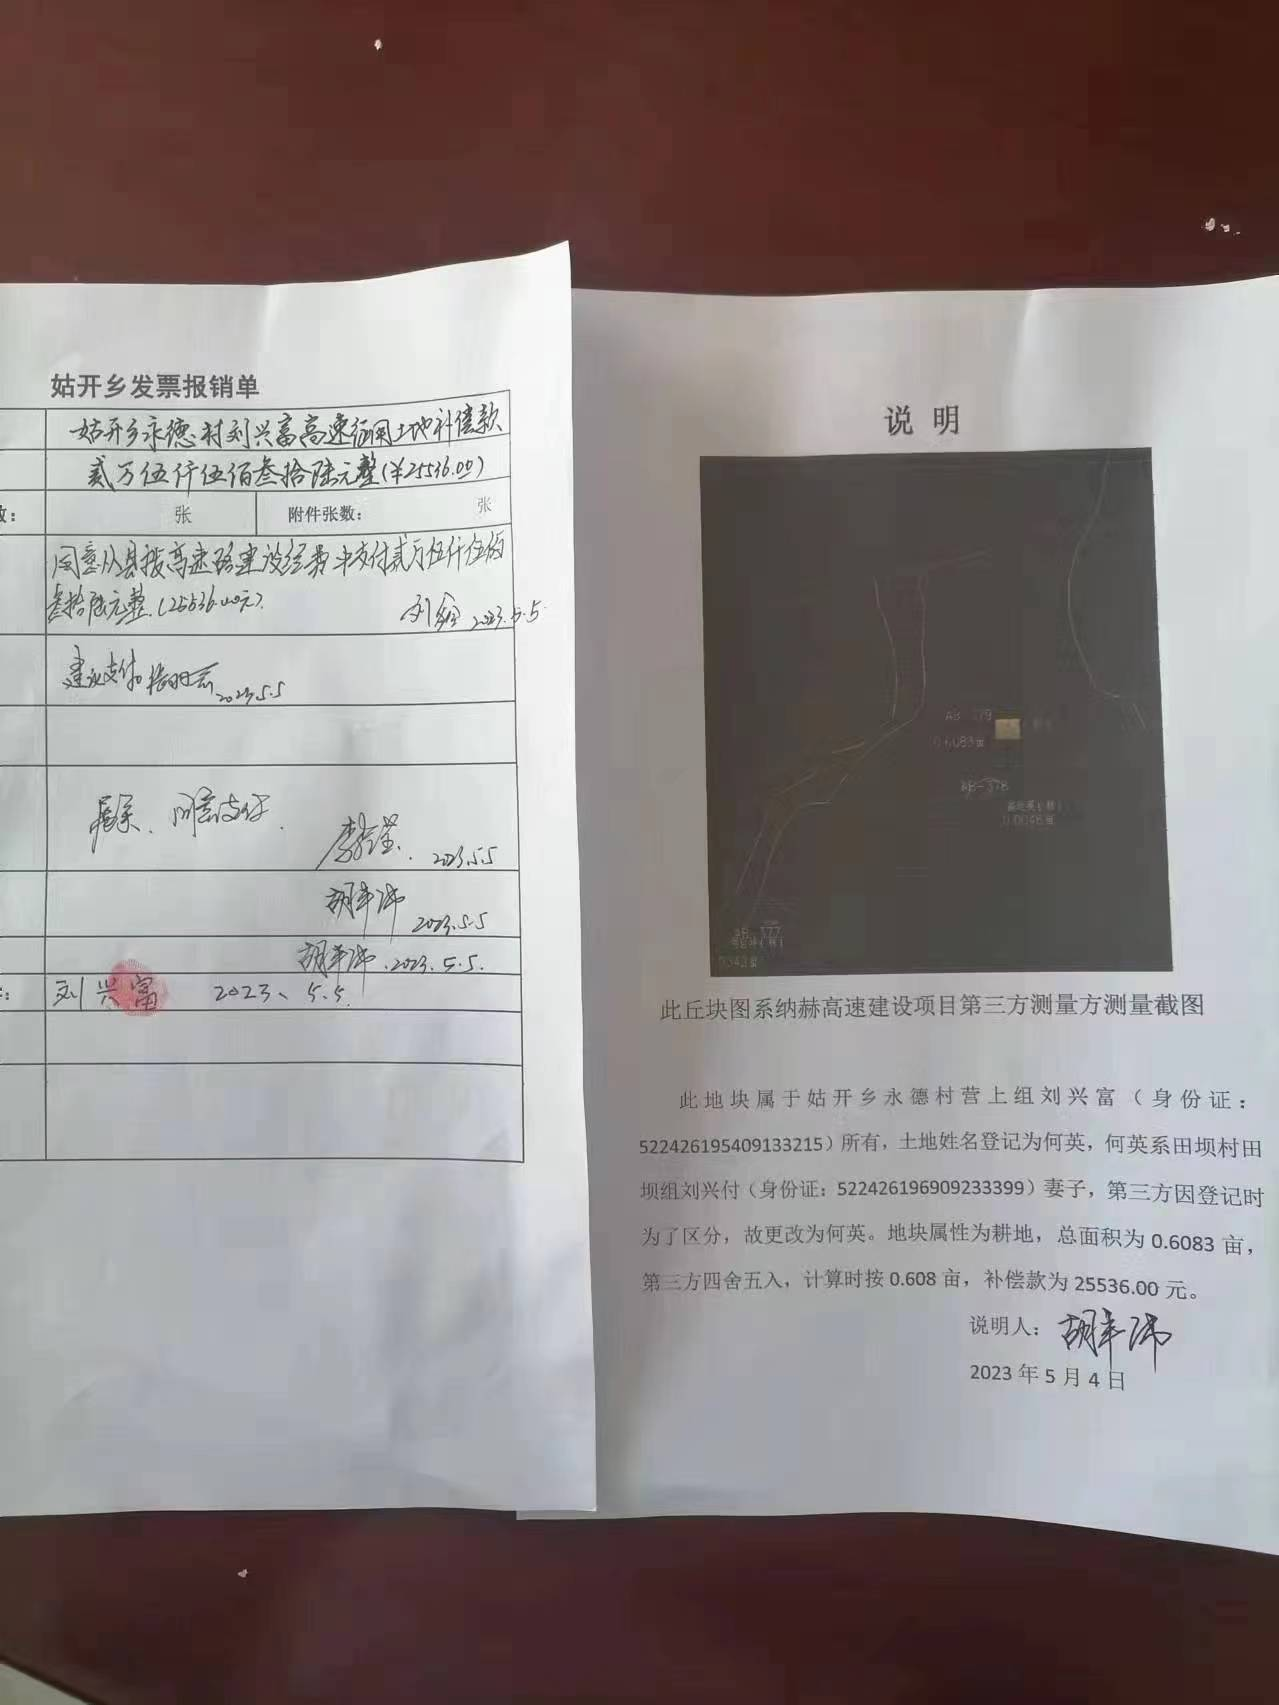 姑开乡发票报销单
姑开乡永德村刘兴富高速征用土地补偿款
贰万伍仟伍佰叁拾陆元整(¥25536.00)
数:
张
附件张数:
张
同意从县拨高速路建设经费中支付贰万伍仟伍佰
叁拾陆元整.(25536.00元).
2023.5.5
建议支付
2023.5.5
属实、同意支付.
2023.5.5
胡丰沛
2023.5.5
胡丰沛.2023.5.5.
刘兴富 2023、5.5.
说 明
AB-379
0.6083亩
AB-378
0.0048亩
AB-377
此丘块图系纳赫高速建设项目第三方测量方测量截图
此地块属于姑开乡永德村营上组刘兴富（身份证：
522426195409133215）所有，土地姓名登记为何英，何英系田坝村田
坝组刘兴付（身份证：522426196909233399）妻子，第三方因登记时
为了区分，故更改为何英。地块属性为耕地，总面积为 0.6083 亩，
第三方四舍五入，计算时按 0.608 亩，补偿款为 25536.00 元。
说明人：胡丰沛
2023 年 5 月 4 日